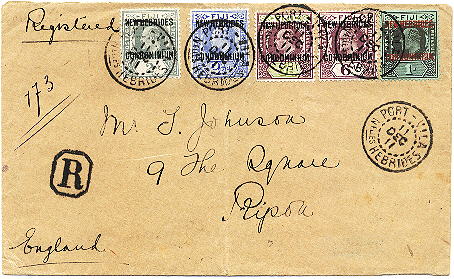 Registered
FIJI FIJI FIJI FIJI FIJI
NEW HEBRIDES NEW HEBRIDES NEW HEBRIDES NEW HEBRIDES
CONDOMINIUM CONDOMINIUM CONDOMINIUM CONDOMINIUM
173
PORT-VILA
11
DEC
11
Nlles HEBRIDES
Mr T. Johnson
9 The Square
Ripon
R
England